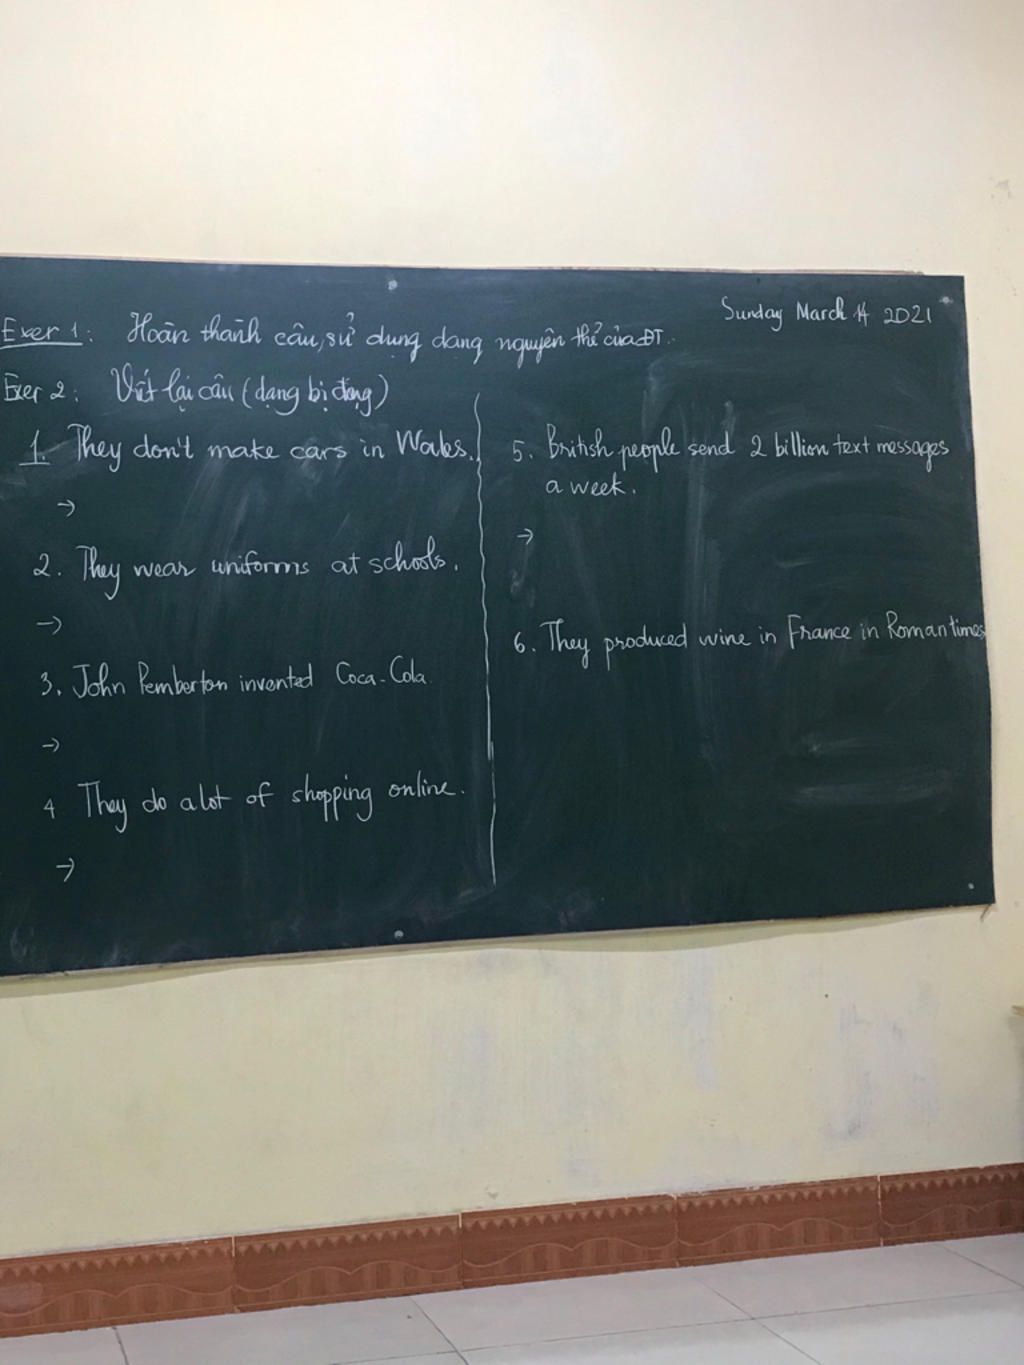 Sunday March 14 2021
Exer 1: Hoàn thành câu, sử dụng dạng nguyên thể của ĐT.
Exer 2: Viết lại câu (dạng bị động)
1 They don't make cars in Wales.
→
2. They wear uniforms at schools.
→
3. John Pemberton invented Coca-Cola.
→
4 They do a lot of shopping online.
→
5. British people send 2 billion text messages
a week.
→
6. They produced wine in France in Roman times